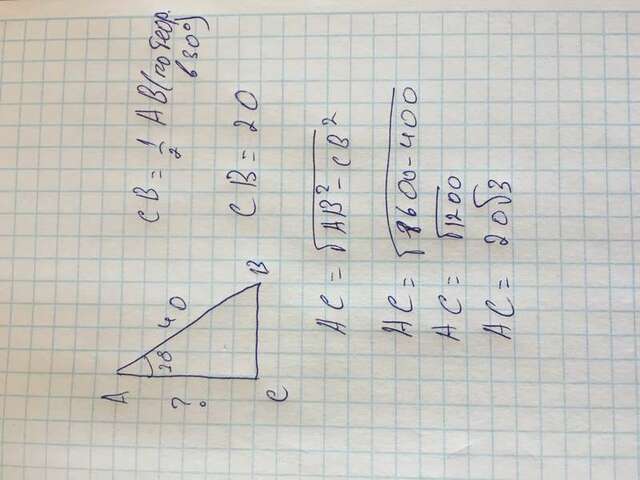 A
30
40
?
C
B
CB = 1/2 AB (по теор.
в 30°)
CB = 20
AC = √AB² - CB²
AC = √1600 - 400
AC = √1200
AC = 20√3